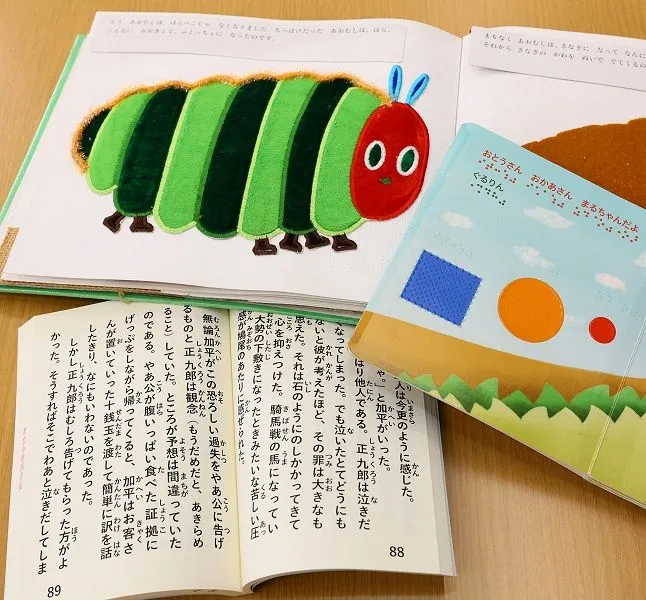 もう　あおむしは、はらぺこじゃ　なくなりました。ちっぽけだった　あおむしは、ほら、
こんなに　おおきくて、ふとっちょに　なったのです。
まもなく　あおむしは、さなぎに　なって　なんに
それから　さなぎの　かわを　ぬいで　でてくるの
おとうさん　おかあさん　まるちゃんだよ
ぐるりん
人は今更のように感じた。
や。」と加平がいった。
はり他人である。正九郎は泣きだ
なってしまった。でも泣いたとてどうにも
ないと彼が考えたほど、その罪は大きなも
思えた。それは石のようにのしかかってきて
心を抑えつけた。騎馬戦の馬になってい
大勢の下敷きになったときみたいな苦しい圧
感が鳩尾のあたりに感ぜられた。
88
無論加平がこの恐ろしい過失をやあ公に告げ
るものと正九郎は観念（もうだめだと、あきらめ
ること）していた。ところが予想は間違っていた
のである。やあ公が腹いっぱい食べた証拠に
げっぷをしながら帰ってくると、加平はお客さ
んが置いていった十銭玉を渡して簡単に訳を話
したきり、なにもいわないのであった。
しかし正九郎はむしろ告げてもらった方がよ
かった。そうすればそこでわあと泣きだしてしま
89